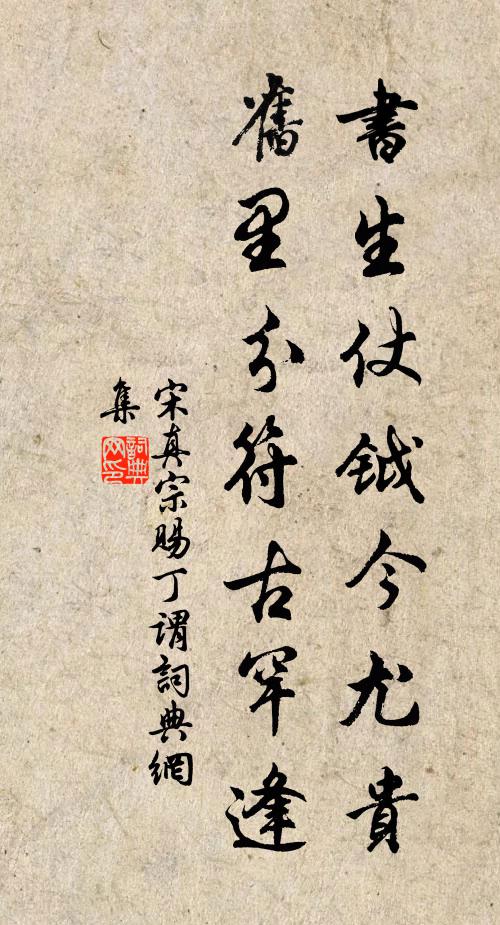 書生仗鉞今尤貴
舊里分符古罕逢
宋真宗賜丁謂詞典網
集
詞典
网印